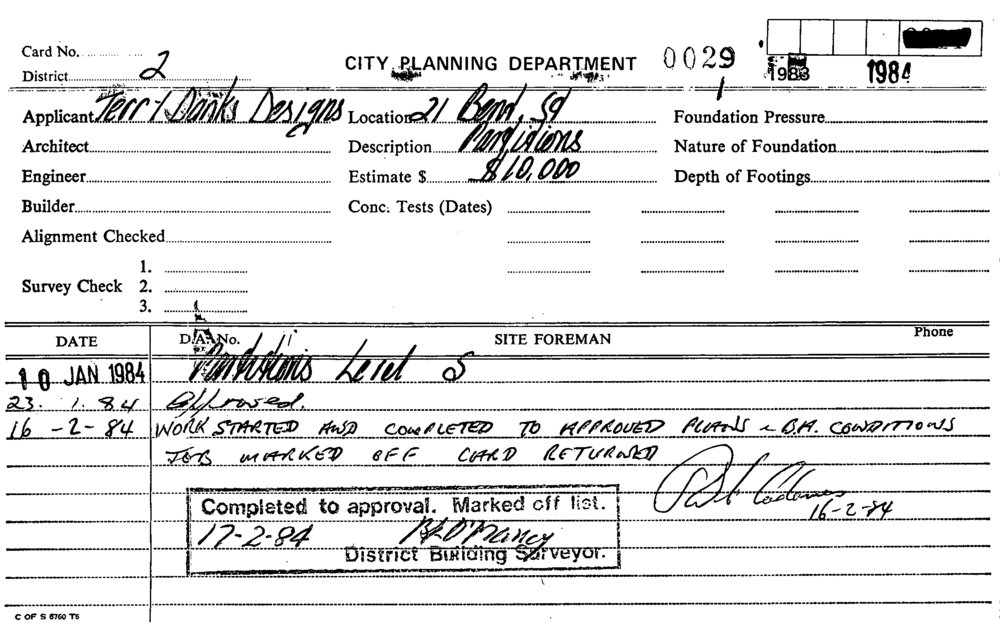 Card No.
District 2
CITY PLANNING DEPARTMENT 0029
1983 1984
Applicant Terry Danks Designs Location 21 Bond, St Foundation Pressure
Architect Description Partitions Nature of Foundation
Engineer Estimate $ $10,000 Depth of Footings
Builder Conc. Tests (Dates)
Alignment Checked
1.
Survey Check 2.
3.
DATE D.A. No. SITE FOREMAN Phone
10 JAN 1984 Partitions Level 5
23. 1. 84 Approved.
16 -2- 84 WORK STARTED AND COMPLETED TO APPROVED PLANS & B.A. CONDITIONS
JOB MARKED OFF CARD RETURNED
16-2-84
Completed to approval. Marked off list.
17-2-84
District Building Surveyor.
C OF S 8760 T6